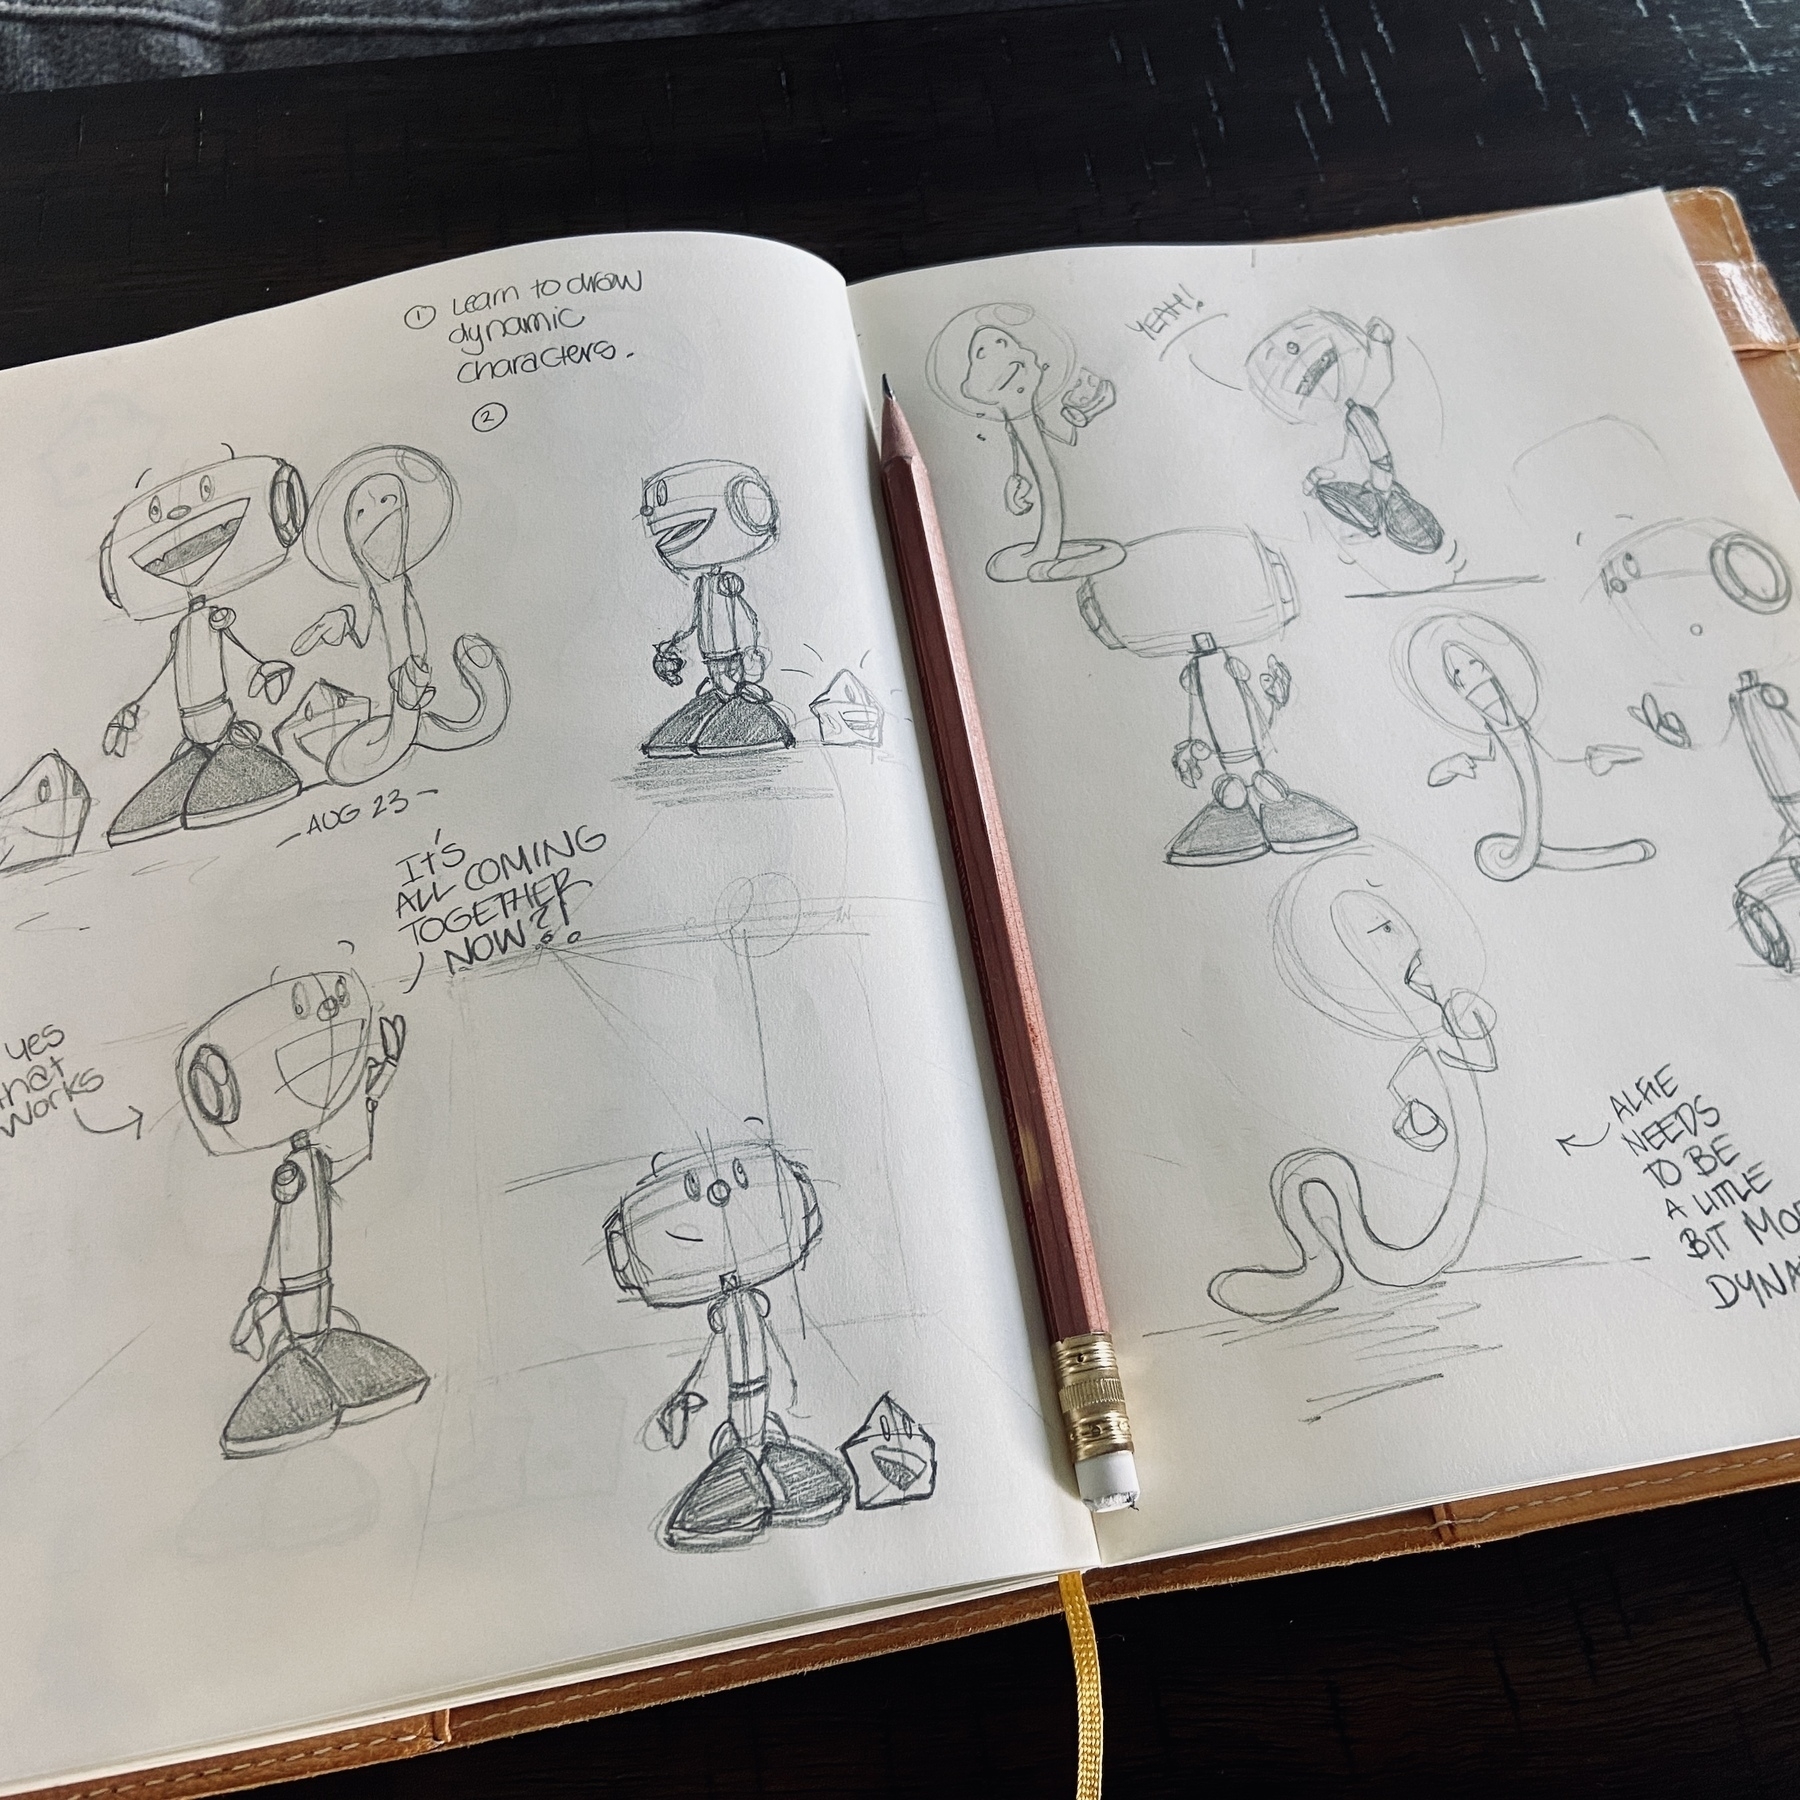 ① Learn to draw
dynamic
characters.
②
- AUG 23 -
It's
ALL COMING
TOGETHER
NOW?!
yes
that
works
YEAH!
ALFIE
NEEDS
TO BE
A LITTLE
BIT